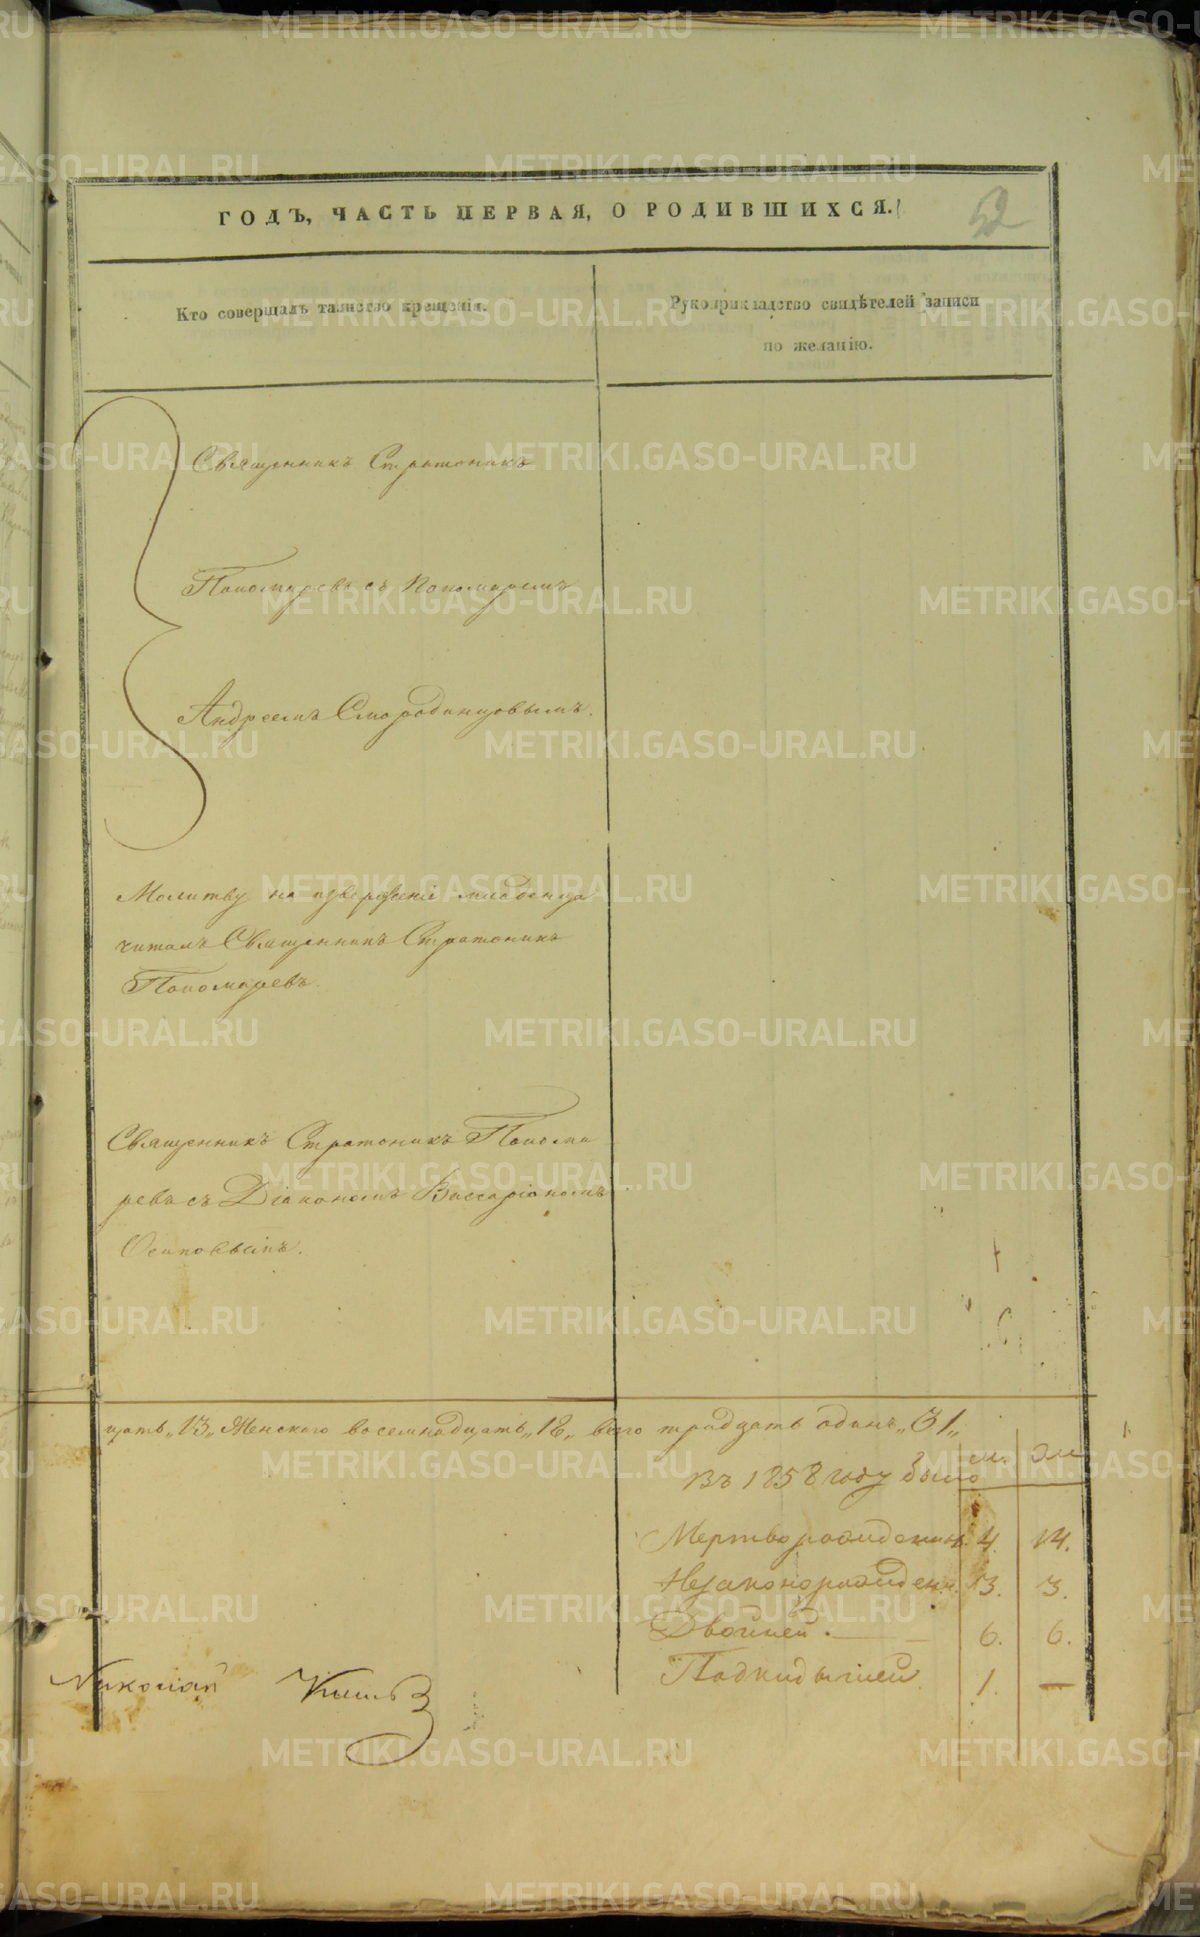 ГОДЪ, ЧАСТЬ ПЕРВАЯ, О РОДИВШИХСЯ.
52
Кто совершалъ таинство крещенія.
Рукоприкладство свидѣтелей записи
по желанію.
Священникъ Стратоникъ
Пономаревъ съ Пономаремъ
Андреемъ Смородинцовымъ.
Молитву на изверженіе младенца
читалъ Священникъ Стратоникъ
Пономаревъ.
Священникъ Стратоникъ Понома
ревъ съ Діакономъ Виссаріономъ
Осиповымъ.
цать „13„ Женскаго восемнадцать „18„ всего тридцать одинъ „31„
Въ 1858 году было
м. ж
Мертворожденныхъ 4. 14.
Незаконорожден. 13. 3.
Двойней. 6. 6.
Подкидышей 1. —
Николай
METRIKI.GASO-URAL.RU